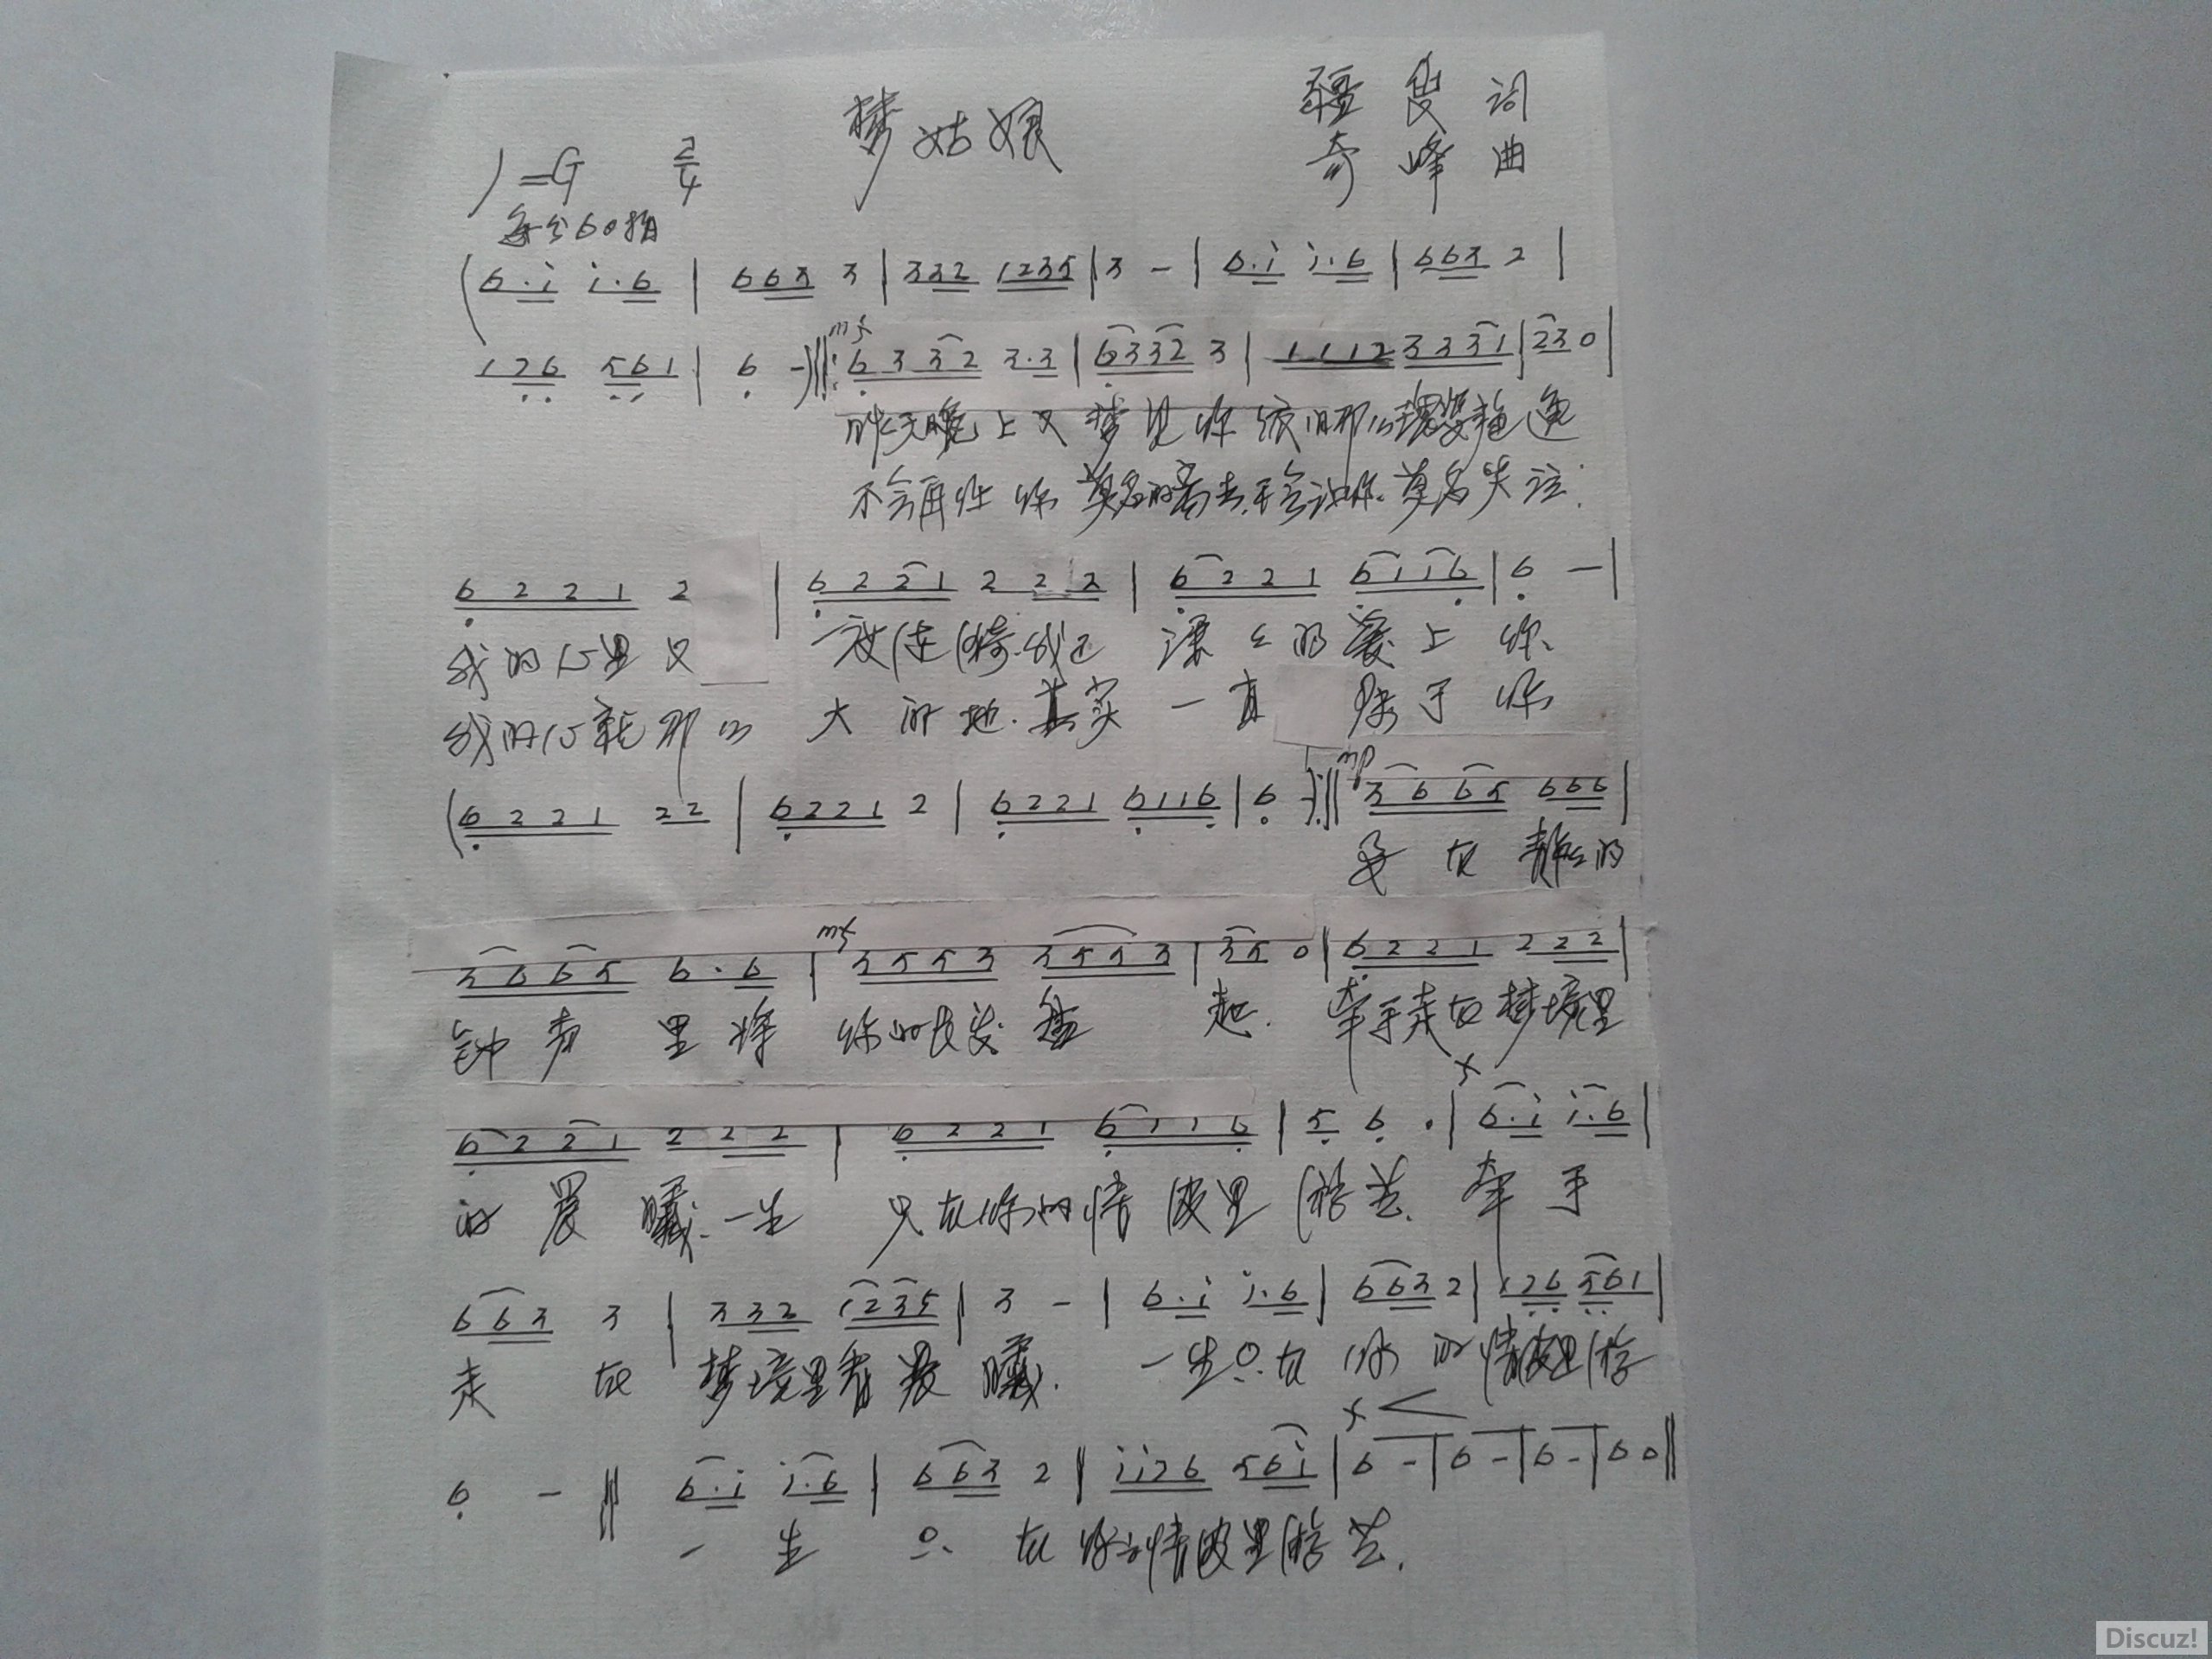 梦姑娘
疆叟 词
1=G 2/4 奇峰 曲
每分60拍
(6·i i·6 | 663 3 | 332 1235 | 3 - | 6·i i·6 | 663 2 |
mf
126 561 | 6 -)‖: 6332 3·3 | 6332 3 | 1112 3331 | 23 0 |
昨天晚上又梦见你 依旧那么
不会再让你莫名的离去 不会让你莫名失
6221 2 | 6221 2 22 | 6221 6116 | 6 - |
我的心里又一次 我已深深的爱上你
我的心就那么大的地 其实一直 于你
mp
(6221 22 | 6221 2 | 6221 6116 | 6 -):‖ 3665 666 |
在静静的
mf
3665 6·6 | 3553 3553 | 35 0 | 6221 222 |
钟声里将你的长发盘起 牵手走在梦境里
f
6221 222 | 6221 6116 | 5 6 · | 6·i i·6 |
的晨曦 一生只在你的情波里游 牵手
663 3 | 332 1235 | 3 - | 6·i i·6 | 663 2 | 126 561 |
走在梦境里看晨曦 一生只在你的情波里游
f
6 - ‖ 6·i i·6 | 663 2 ‖ ii26 56i | 6 - | 6 - | 6 - | 6 0 ‖
一生只在你的情波里游
Discuz!